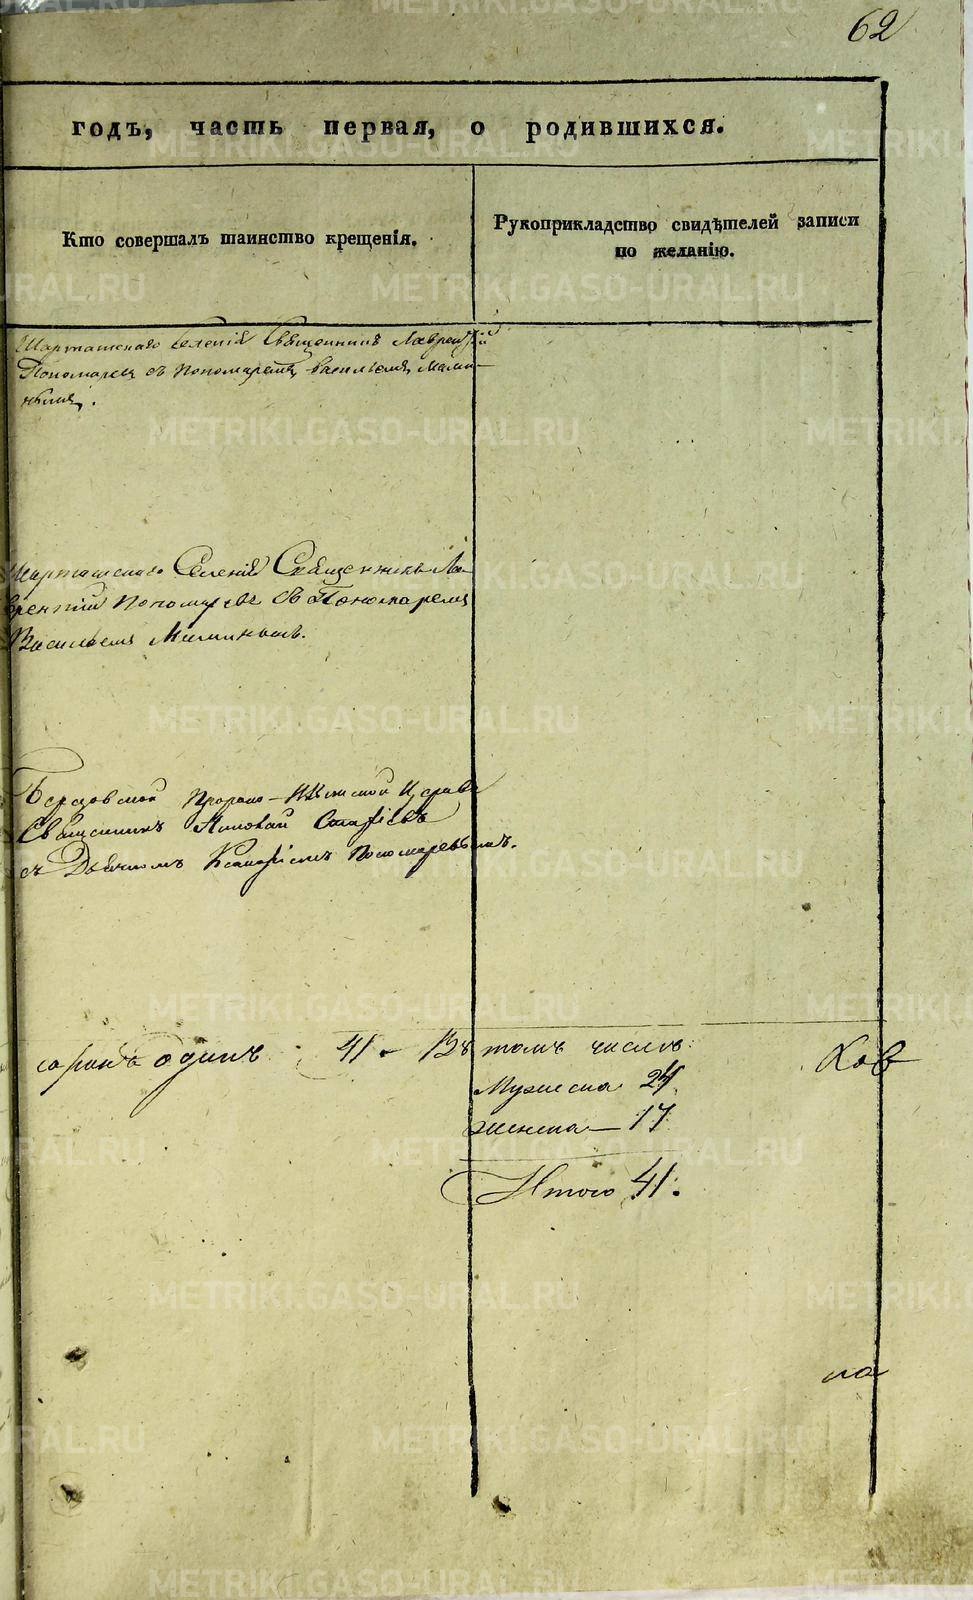 62
годъ, часть первая, о родившихся.
Кто совершалъ таинство крещенія.
Рукоприкладство свидѣтелей записи
по желанію.
Шарташскаго Селенія Священникъ Лаврентій
Пономаревъ съ Пономаремъ Васильемъ Мами-
нымъ.
Шарташскаго Селенія Священникъ Ла-
врентій Пономаревъ съ Пономаремъ
Васильемъ Маминымъ.
Березовской Пророко-Ильинской Церкви
Священникъ Николай
съ Дьячкомъ Пономаревымъ.
сорокъ одинъ 41 - Въ томъ числѣ: Ков
Мужеска 24
Женска - 17
Итого 41.
па
METRIKI.GASO-URAL.RU